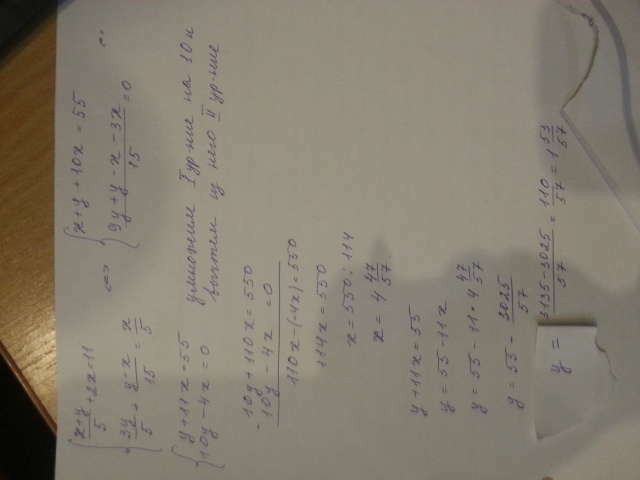 { (x+y)/5 + 2x = 11
{ 3y/5 + (y-x)/15 = x/5 <=>
{ x+y+10x=55
{ (9y+y-x-3x)/15 = 0 <=>
{ y+11x=55
{ 10y-4x=0
умножим I ур-ние на 10 и
вычтем из него II ур-ние
- 10y+110x=550
10y-4x =0
110x-(-4x)=550
114x=550
x=550:114
x=4 47/57
y+11x=55
y=55-11x
y=55-11•4 47/57
y=55- 3025/57
y= (3135-3025)/57 = 110/57 = 1 53/57